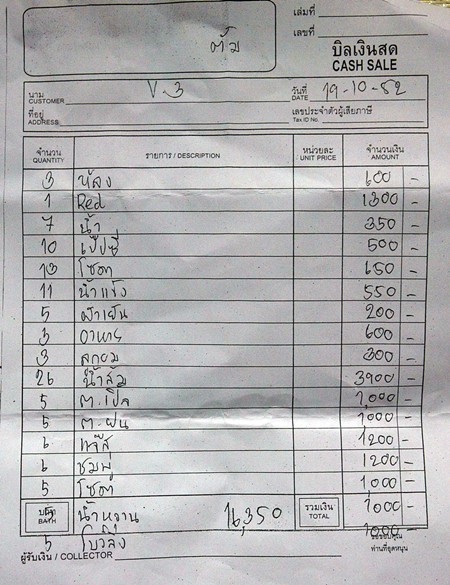 เล่มที่
เลขที่
ต้ม
บิลเงินสด
CASH SALE
นาม V-3 วันที่ 19-10-52
CUSTOMER DATE
ที่อยู่ เลขประจำตัวผู้เสียภาษี
ADDRESS Tax ID No.
จำนวน รายการ / DESCRIPTION หน่วยละ จำนวนเงิน
QUANTITY UNIT PRICE AMOUNT
3 600 -
1 Red 1300 -
7 น้ำ 350 -
10 เป๊ปซี่ 500 -
13 โซดา 650 -
11 น้ำแข็ง 550 -
5 ผ้าเย็น 200 -
3 อาหาร 600 -
3 ลูกอม 300 -
26 น้ำส้ม 3900 -
5 ต.เปิ้ล 1,000 -
5 ต.ฝน 1000 -
6 1200 -
6 ชมพู่ 1200 -
5 โซดา 1000 -
5 น้ำหวาน 16,350 รวมเงิน 1000 -
บาท BATH TOTAL
5 1000 -
ขอขอบคุณ
ผู้รับเงิน / COLLECTOR ท่านที่อุดหนุน